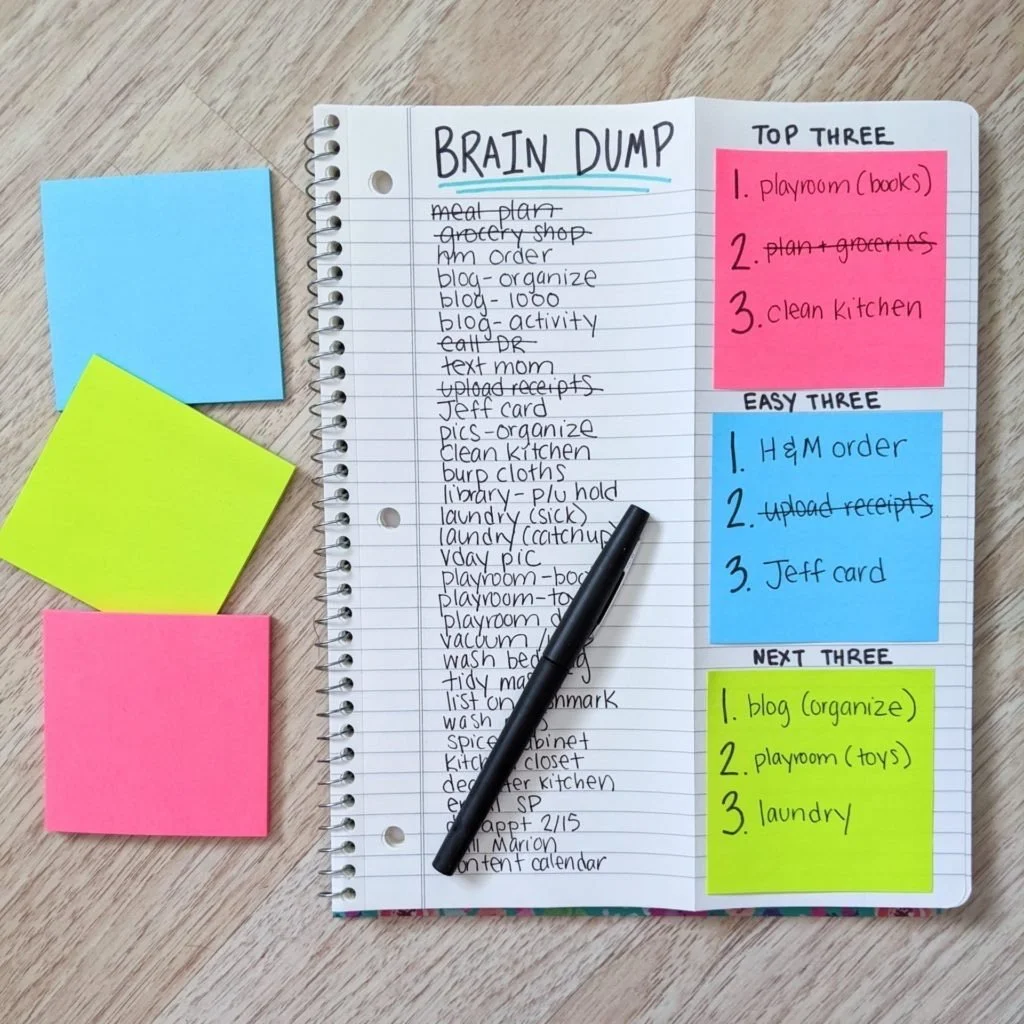 BRAIN DUMP
meal plan
grocery shop
hm order
blog-organize
blog-1000
blog-activity
call DR
text mom
upload receipts
Jeff card
pics-organize
clean kitchen
burp cloths
library-p/u hold
laundry (sick)
laundry (catchup)
vday pic
playroom-boo
playroom-to
playroom d
vacuum
wash bedding
tidy mas
list on
wash
spice cabinet
kitchen closet
declutter kitchen
email SP
appt 2/15
call Marion
content calendar
TOP THREE
1. playroom (books)
2. plan + groceries
3. clean kitchen
EASY THREE
1. H&M order
2. upload receipts
3. Jeff card
NEXT THREE
1. blog (organize)
2. playroom (toys)
3. laundry